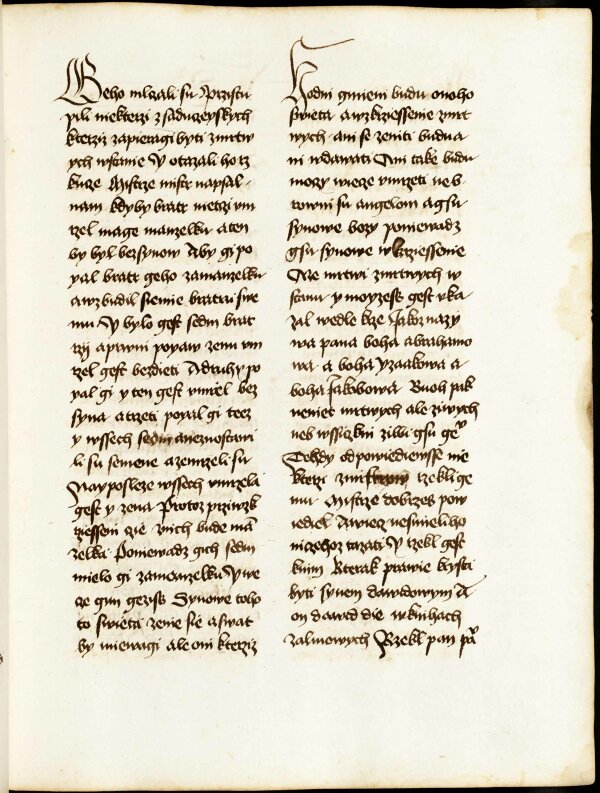 Geho mlczali su Przistu
pili niekterzi z saduczeyskych
kterziz zapieragi byti zmrtw
ych wstanie Y otazali ho rz
kucze Mistrze mistr napsal
nam kdyby bratr nietzi vm
rzel mage manzelku a ten
by byl bez synow Aby gi po
yal bratr geho za manzelku
a wzbudil siemie bratru swe
mu Y bylo gest sedm brat
rzij a prwni poyaw zenu vm
rzel gest bez dieti A druhy po
yal gi y ten gest vmrzel bez
syna a trzeti poyal gi tez
y wssech sedm a nezuostawi
li su semene a zemrzeli su
Nayposleze wssech vmrzela
gest y zena Protoz przi wzk
rziesseni czie z nich bude man
zelka Poniewadz gich sedm
mielo gi za manzelku Y we
cze gim gezis Synowe toho
to swieta zenie sie a swat
by miewagi ale oni kterziz
hodni gmieni budu onoho
swieta a wzkrziessenie zmrt
wych ani se zeniti budu a
ni wdawati Ani take budu
mocy wiecze vmrzeti neb
rowni su angelom a gsu
synowe bozy poniewadz
gsu synowe wzkrziessenie
Ale mrtwi z mrtwych w
stanu y moyzess gest vka
zal wedle krze Jakoz nazy
wa pana boha abrahamo
wa a boha Yzaakowa a
boha Jakobowa Buoh pak
neniet mrtwych ale ziwych
neb wssiczkni ziwi gsu gemu
Tehdy odpowiediewsse nie
kterzi z mistruow rzekli ge
mu Mistrze dobrzes pow
iediel A wiecz nesmieli ho
niczehoz tazati Y rzekl gest
k nim Kterak prawie krysta
byti synem dawidowym A
on dawid die w knihach
zalmowych Rzekl pan panu